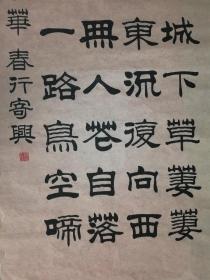 城下草萋萋
東流復向西
無人花自落
一路鳥空啼
華春行寄興